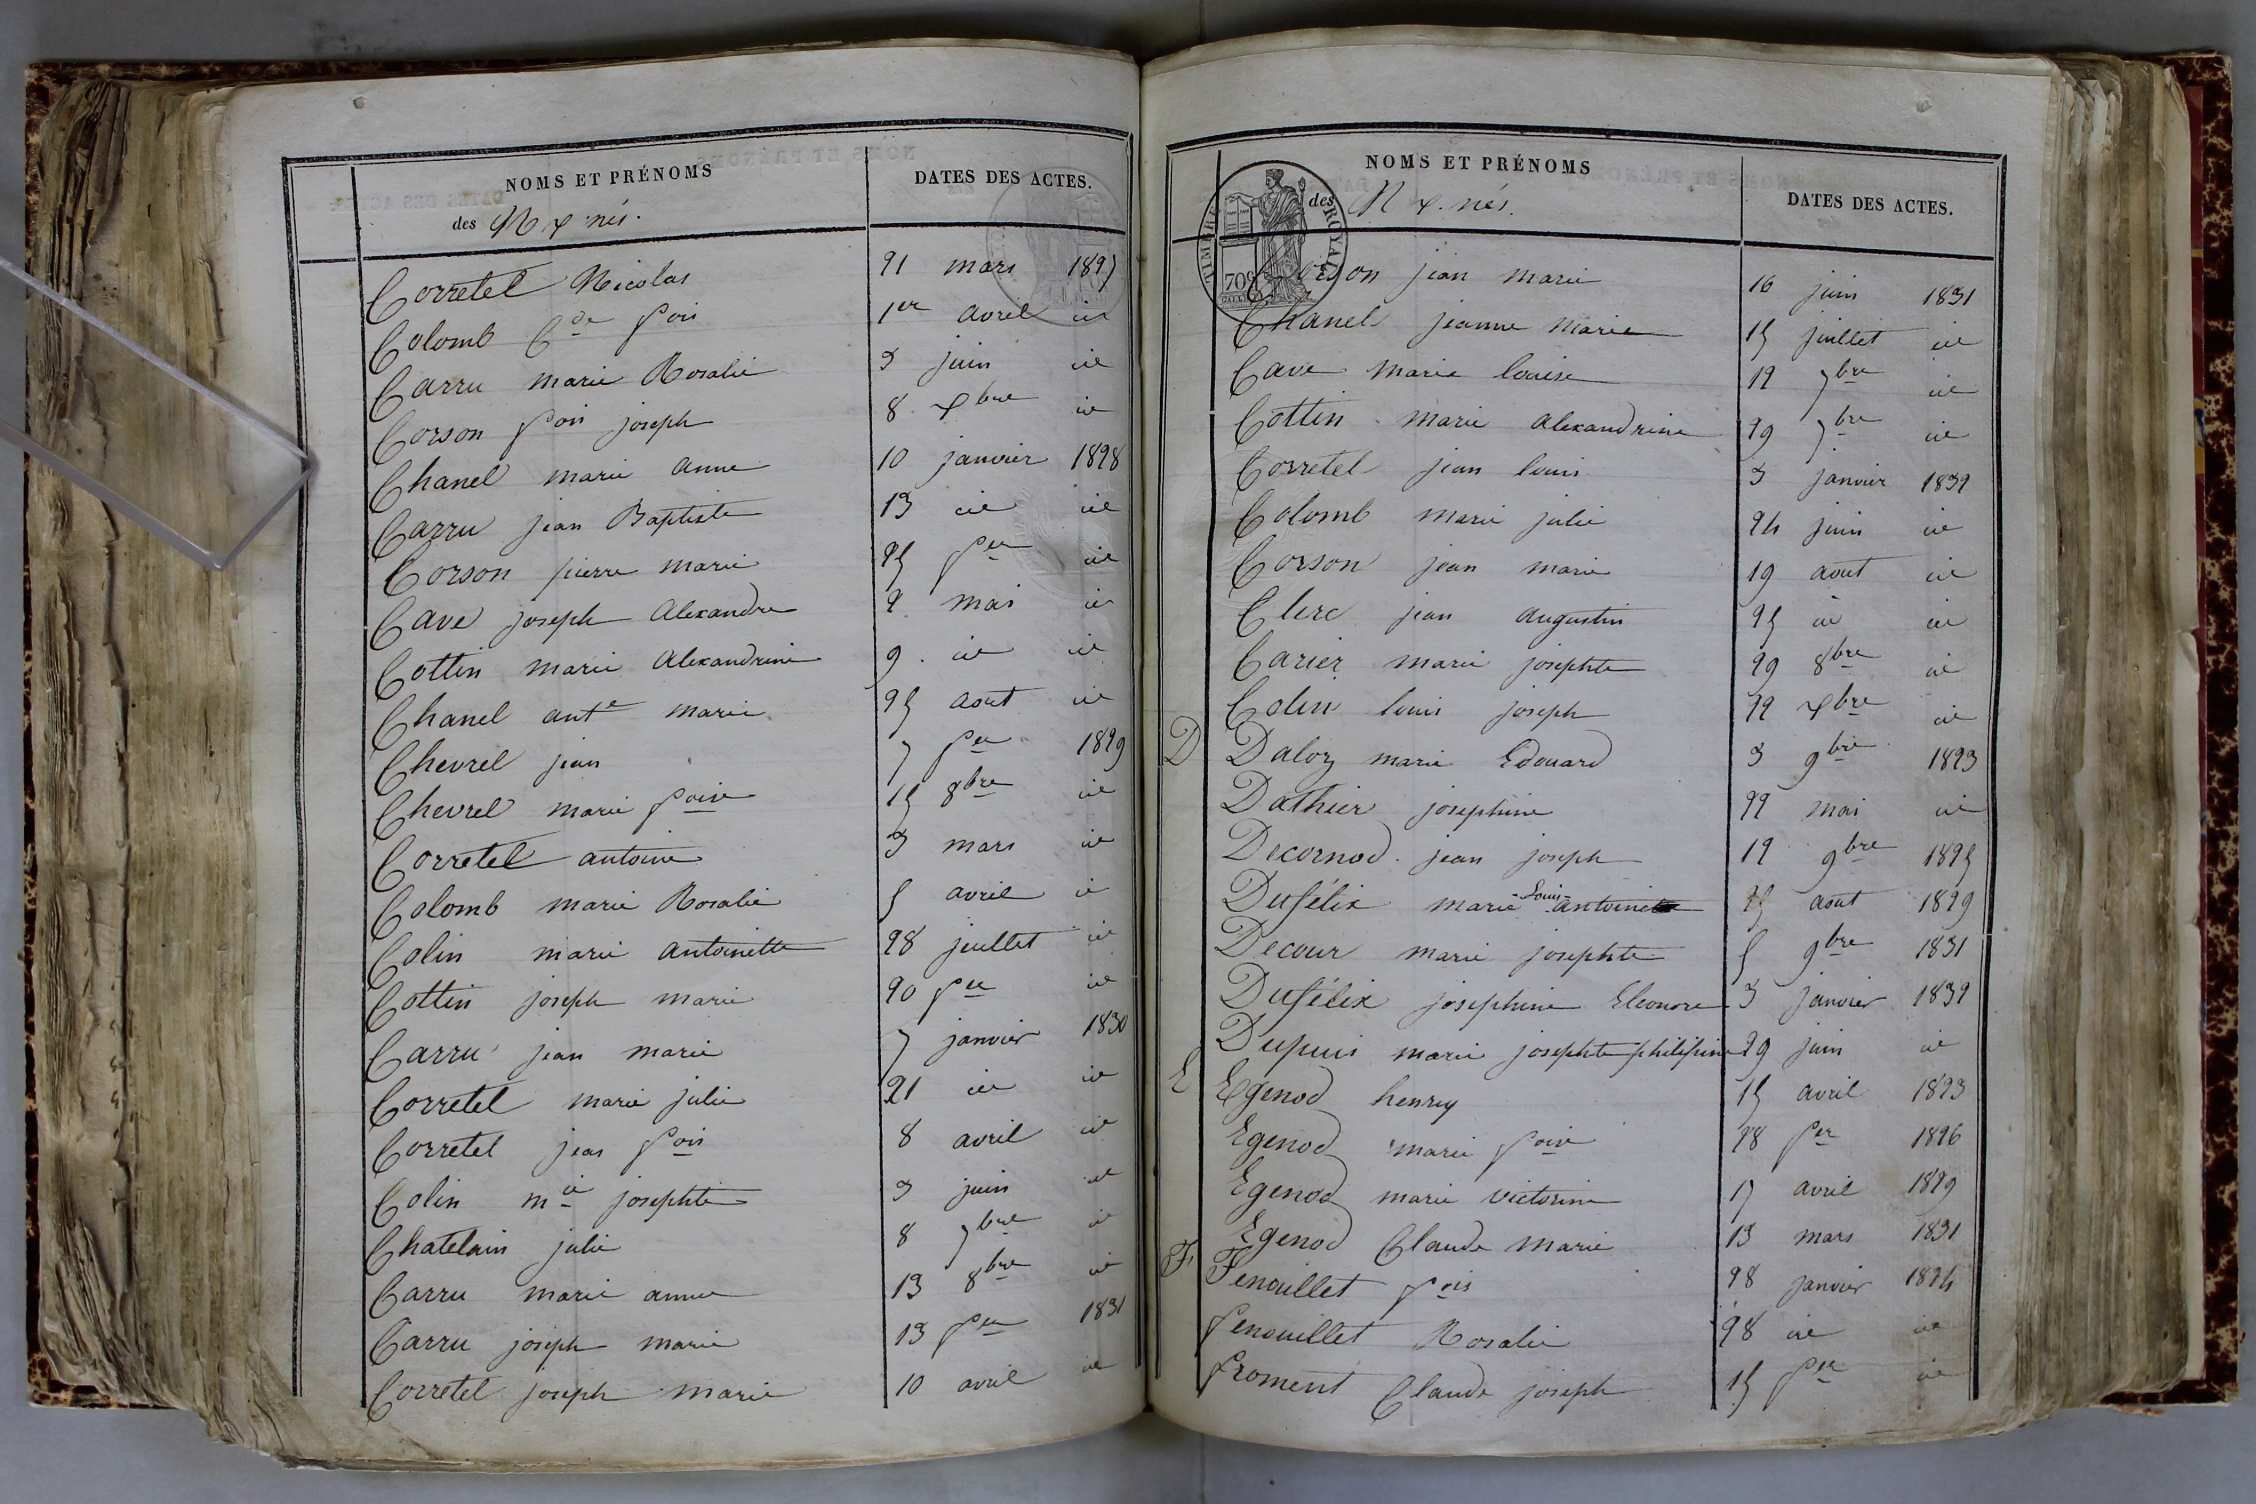 NOMS ET PRÉNOMS
des N x nés.
DATES DES ACTES.
Corretel Nicolas 21 mars 1827
Colomb Cde fois 1er avril id
Carru marie Rosalie 3 juin id
Corson fois joseph 8 xbre id
Chanel marie anne 10 janvier 1828
Carru jean Baptiste 13 id id
Corson pierre marie 25 fer id
Cave joseph Alexandre 2 mai id
Cottin marie Alexandrine 9 id id
Chanel ante marie 25 aout id
Chevrel jean 7 fer 1829
Chevrel marie foise 15 8bre id
Corretel antoine 3 mars id
Colomb marie Rosalie 5 avril id
Colin marie antoinette 28 juillet id
Cottin joseph marie 20 fer id
Carru jean marie 7 janvier 1830
Corretel marie julie 21 id id
Corretel jean fois 8 avril id
Colin mie josephte 3 juin id
Chatelain julie 8 7bre id
Carru marie anne 13 8bre id
Carru joseph marie 13 fer 1831
Corretel joseph marie 10 avril id
TIMBRE ROYAL
70c
NOMS ET PRÉNOMS
des N x. nés.
DATES DES ACTES.
Corson jean marie 16 juin 1831
Chanel jeanne marie 15 juillet id
Cave marie louise 12 7bre id
Cottin marie alexandrine 29 7bre id
Corretel jean louis 3 janvier 1832
Colomb marie julie 24 juin id
Corson jean marie 19 aout id
Clerc jean augustin 25 id id
Carier marie josephte 29 8bre id
Colin louis joseph 22 xbre id
D Daloz marie Edouard 3 9bre 1823
Dathier josephine 22 mai id
Decornod jean joseph 12 9bre 1825
Dufélix marie Louis antoine 25 aout 1829
Decour marie josephte 5 9bre 1831
Dufélix josephine Eleonore 3 janvier 1832
Dupuis marie josephte philipine 29 juin id
E Egenod henry 15 avril 1823
Egenod marie foise 28 fer 1826
Egenod marie victorine 17 avril 1829
Egenod Claude marie 13 mars 1831
F Fenouillet fois 28 janvier 1824
Fenouillet Rosalie 28 id id
Froment Claude joseph 15 fer id